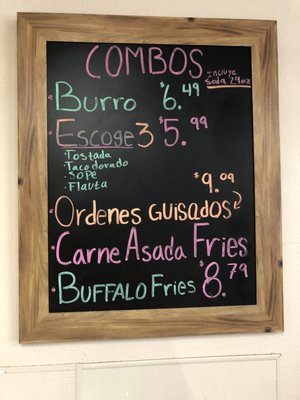 COMBOS
Incluye
Soda 24oz
• Burro $6.49
• Escoge 3 $5.99
• Tostada
• Taco dorado
• Sope
• Flauta
$9.09
• Ordenes Guisados
• Carne Asada Fries
• Buffalo Fries $8.79